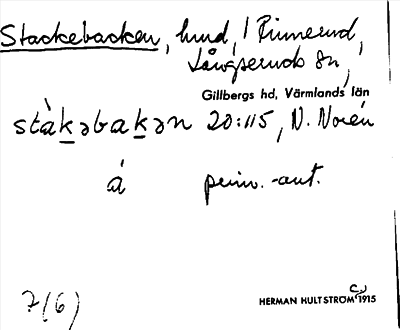 Stackebacken, hmd, / Rinnerud,
Långseruds sn,
Gillbergs hd, Värmlands län
stàk̲əbak̲ən 20:115, N. Norén
á prim. -ant.
7(6)
HERMAN HULTSTRÖM CJ 1915